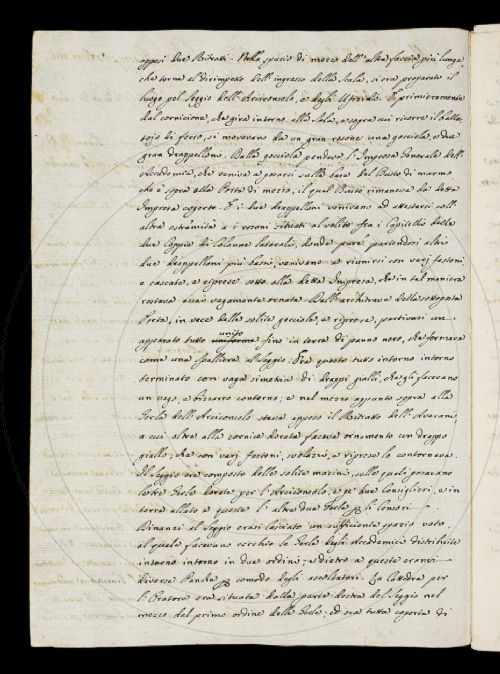 appesi due Ritratti. Nello spazio di mezzo dell'altra faccia più lunga,
che torna al dirimpetto dell'ingresso della Sala, si era preparato il
luogo pel Seggio dell'Arciconsolo, e degli Ufiziali. E primieramente
dal cornicione, che gira intorno alla Sala, e sopra cui ricorre il balla-
tojo di ferro, si movevano da un gran rosone una gocciola, e due
gran drappelloni. Dalla gocciola pendeva l'Impresa Generale dell'
Accademia, che veniva a posarsi sulla base del Busto di marmo,
che è sopra alla Porta di mezzo, il qual Busto rimaneva da detta
Impresa coperto. E i due drappelloni venivano ad attaccarsi coll'
altra estremità a i rosoni situati al solito fra i Capitelli delle
due Coppie di Colonne laterali, donde pure partendosi altri
due drappelloni più bassi, venivano a riunirsi con varj festoni,
e cascate, e riprese sotto alla detta Impresa, che in tal maniera
restava assai vagamente ornata. Dall'architrave della sottoposta
Porta, in vece delle solite gocciole, e riprese, partivasi un
apparato tutto unito uniforme fino in terra di panno nero, che formava
come una spalliera al Seggio. Era questo tutto intorno intorno
terminato con vaga simetria di drappi gialli, che gli facevano
un vago, e bizzarro contorno; e nel mezzo appunto sopra alla
Gerla dell'Arciconsolo stava appeso il Ritratto dell'Averani,
a cui oltre alla cornice dorata faceva ornamento un drappo
giallo, che con varj festoni, svolazzi, e riprese lo contornava.
Il Seggio era composto delle solite macine, sulle quali posavano
le tre Gerle dorate per l'Arciconsolo, e pe' due Consiglieri, e in
terra allato a queste l'altre due Gerle p li Censori
Dinanzi al Seggio erasi lasciato un sufficiente spazio voto,
al quale facevano cerchio le Gerle degli Accademici distribuite
intorno intorno in due ordini; e dietro a queste eranvi
diverse Panche p comodo degli ascoltatori. La Cattedra per
l'Oratore era situata dalla parte destra del Seggio nel
mezzo del primo ordine delle Gerle; ed era tutta coperta di